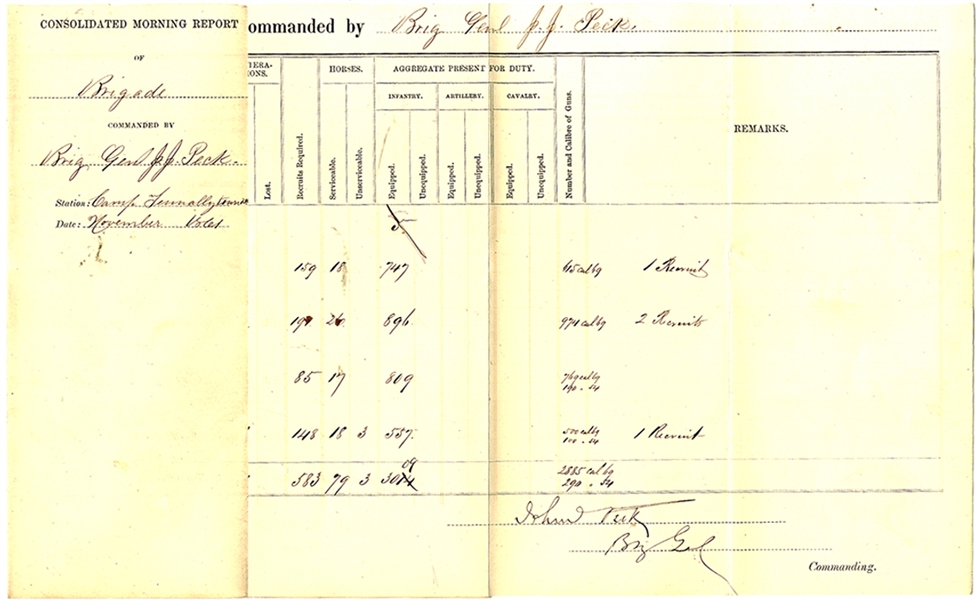 CONSOLIDATED MORNING REPORT
OF
Brigade
COMMANDED BY
Brig Genl J.J. Peck.
Station: Camp
Date: November
ommanded by Brig Genl J. J. Peck.
TERA-
IONS.
HORSES.
AGGREGATE PRESENT FOR DUTY.
INFANTRY.
ARTILLERY.
CAVALRY.
Lost.
Recruits Required.
Serviceable.
Unserviceable.
Equipped.
Unequipped.
Equipped.
Unequipped.
Equipped.
Unequipped.
Number and Calibre of Guns.
REMARKS.
5
159 18 747 1 Recruit
26 896 971 cal 69 2 Recruits
85 17 809 769 cal 69
190 " 54
148 18 3 557 500 cal 69 1 Recruit
100 " 54
09
583 79 3 3014 2885 cal 69
290 " 54
John J Peck
Brig Gl
Commanding.